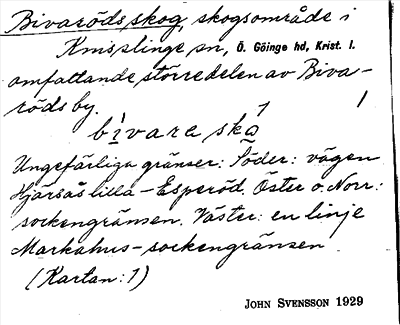 Bivarödsskog, skogsområde i
Knisslinge sn, Ö. Göinge hd, Krist. l.
omfattande större delen av Biva-
röds by.
bivare sko
Ungefärliga gränser: Söder: vägen
Hjärsås lilla-Esperöd. Öster o. Norr:
sockengränsen. Väster: en linje
Markahus-sockengränsen
(Kartan: 1)
JOHN SVENSSON 1929